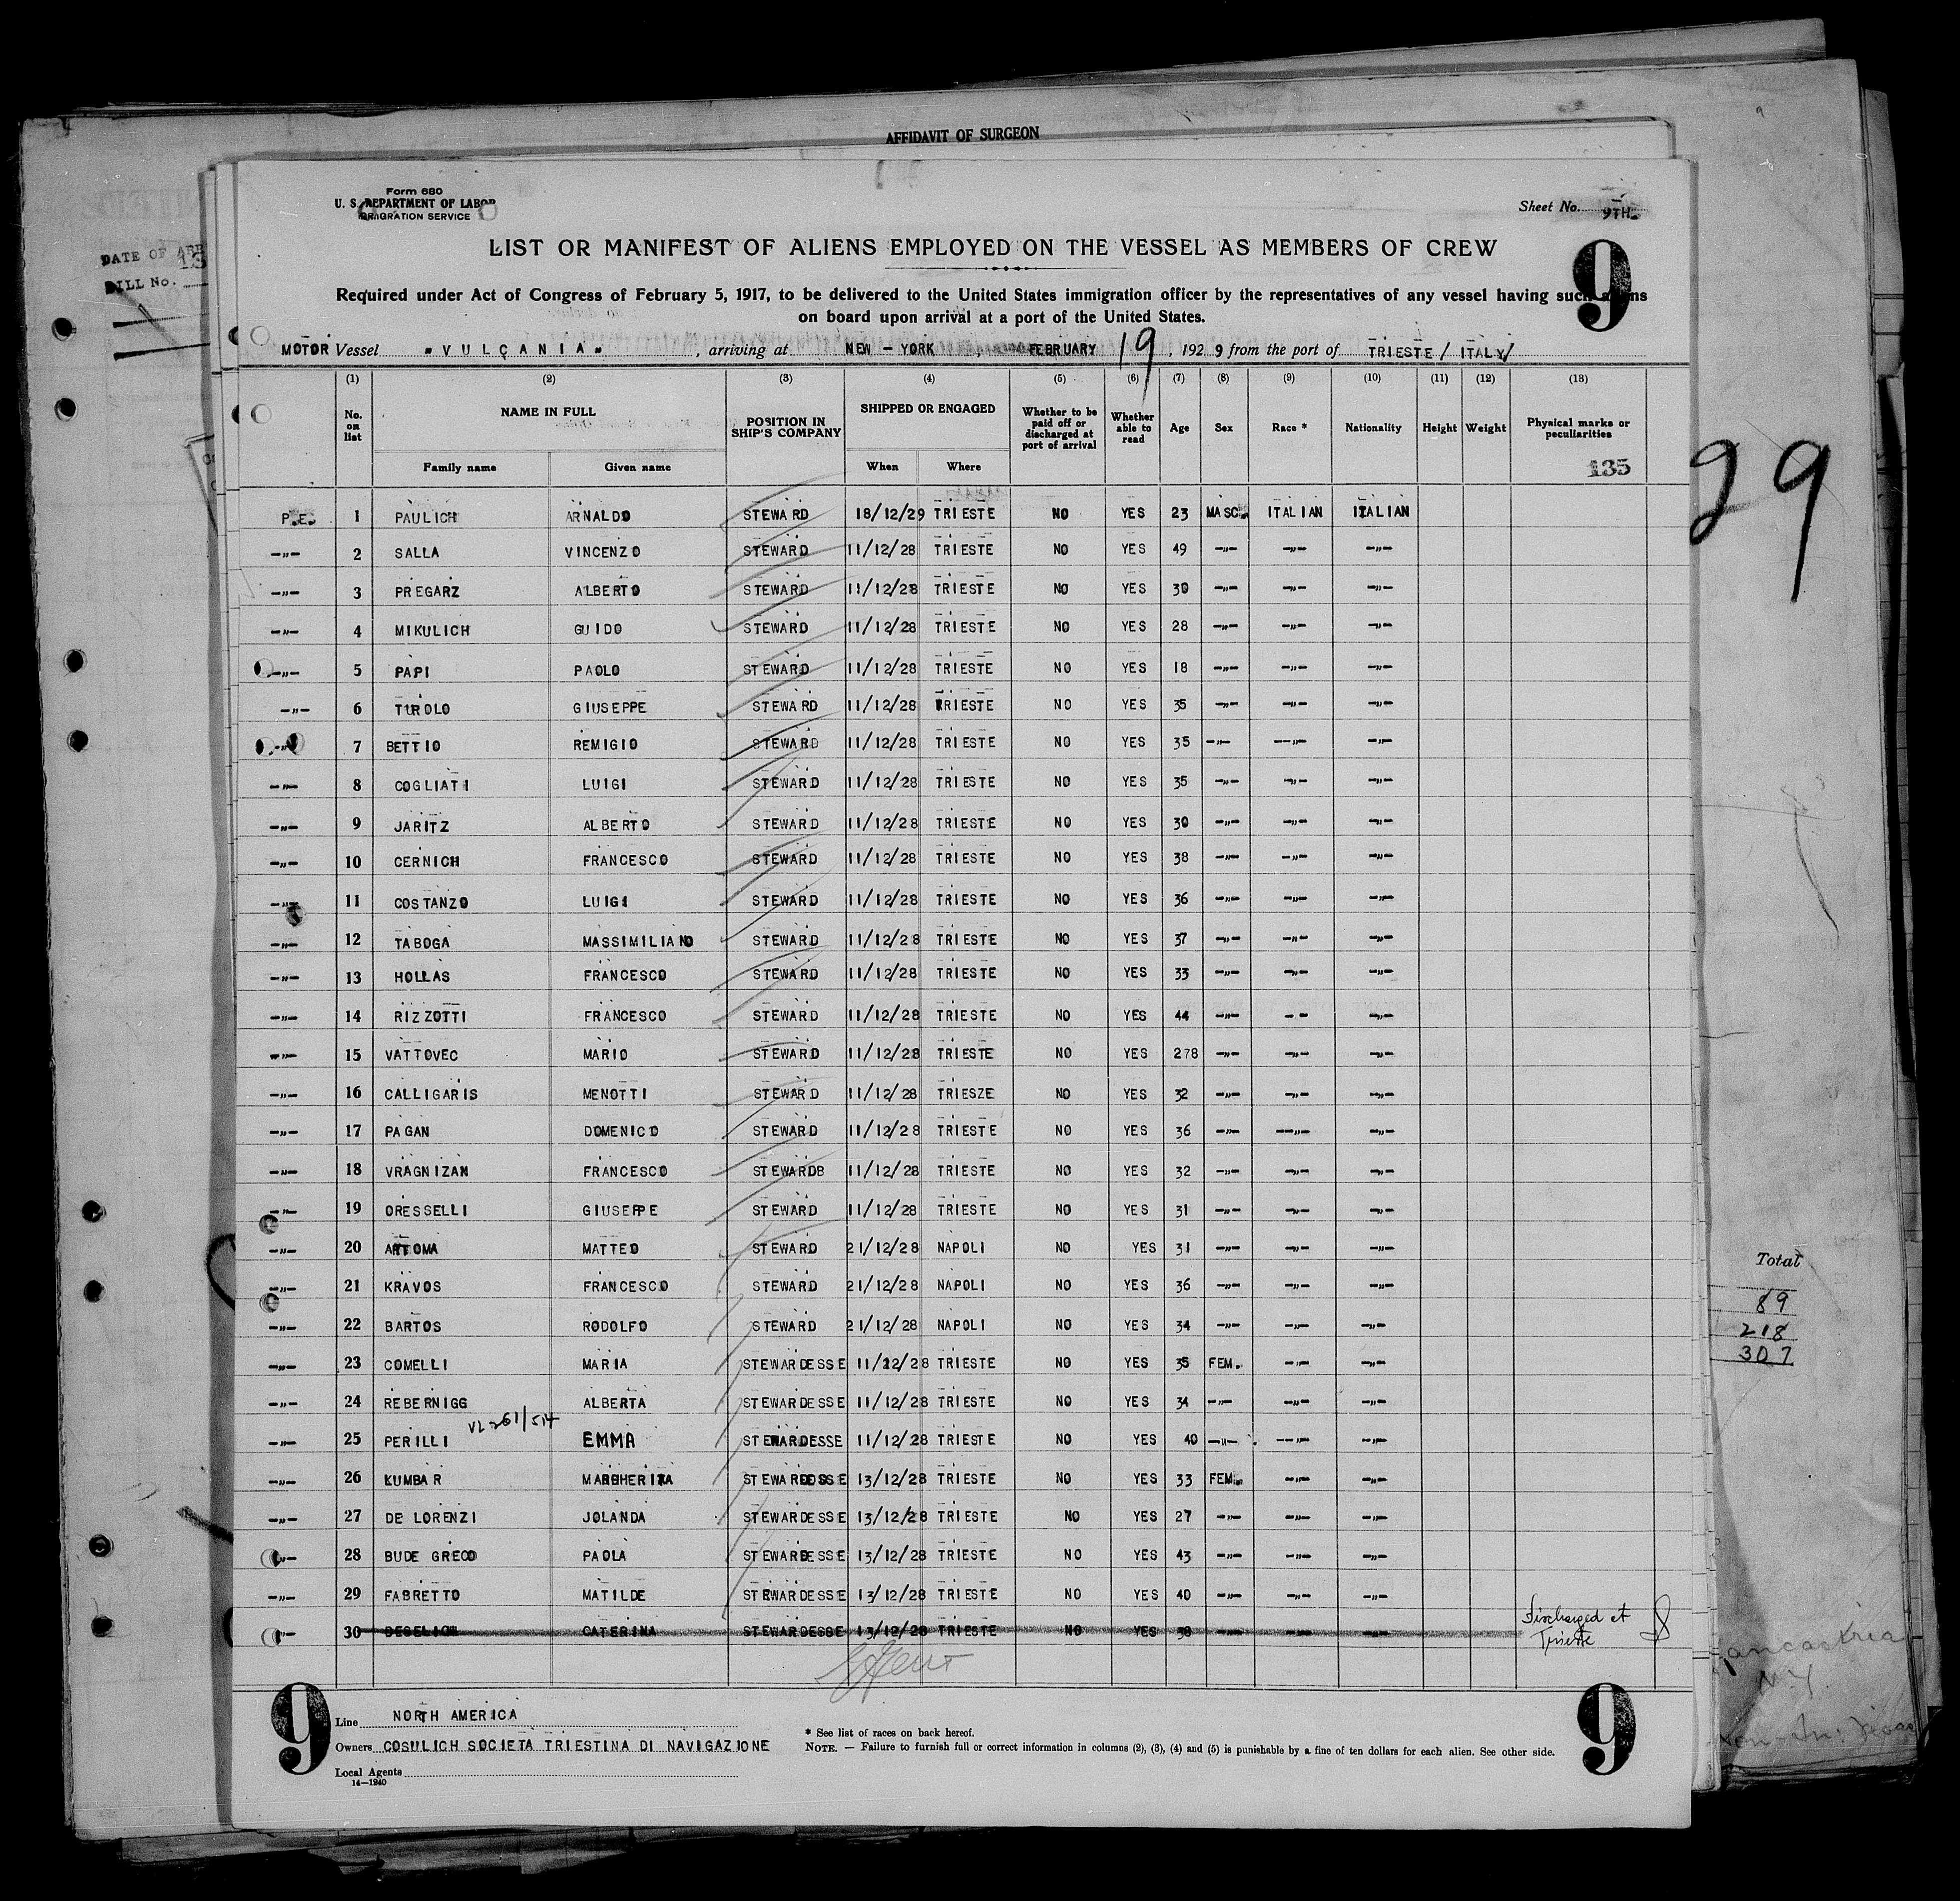 AFFIDAVIT OF SURGEON
Form 680
U. S. DEPARTMENT OF LABOR
IMMIGRATION SERVICE
Sheet No. 9TH.
9
DATE OF ARR
BILL No.
LIST OR MANIFEST OF ALIENS EMPLOYED ON THE VESSEL AS MEMBERS OF CREW
Required under Act of Congress of February 5, 1917, to be delivered to the United States immigration officer by the representatives of any vessel having such aliens
on board upon arrival at a port of the United States.
MOTOR Vessel "VULCANIA", arriving at NEW-YORK, FEBRUARY 19, 1929 from the port of TRIESTE/ITALY/
(1) (2) (3) (4) (5) (6) (7) (8) (9) (10) (11) (12) (13)
No. on list NAME IN FULL Family name Given name POSITION IN SHIP'S COMPANY SHIPPED OR ENGAGED When Where Whether to be paid off or discharged at port of arrival Whether able to read Age Sex Race * Nationality Height Weight Physical marks or peculiarities
135
29
P.E. 1 PAULICH ARNALDO STEWARD 18/12/29 TRIESTE NO YES 23 MASC. ITALIAN ITALIAN
-"- 2 SALLA VINCENZO STEWARD 11/12/28 TRIESTE NO YES 49 -"- -"- -"-
-"- 3 PREGARZ ALBERTO STEWARD 11/12/28 TRIESTE NO YES 30 -"- -"- -"-
-"- 4 MIKULICH GUIDO STEWARD 11/12/28 TRIESTE NO YES 28 -"- -"- -"-
-"- 5 PAPI PAOLO STEWARD 11/12/28 TRIESTE NO YES 18 -"- -"- -"-
-"- 6 TUROLO GIUSEPPE STEWARD 11/12/28 TRIESTE NO YES 35 -"- -"- -"-
-"- 7 BETTIO REMIGIO STEWARD 11/12/28 TRIESTE NO YES 35 -"- -"- -"-
-"- 8 COGLIATI LUIGI STEWARD 11/12/28 TRIESTE NO YES 35 -"- -"- -"-
-"- 9 JARITZ ALBERTO STEWARD 11/12/28 TRIESTE NO YES 30 -"- -"- -"-
-"- 10 CERNICH FRANCESCO STEWARD 11/12/28 TRIESTE NO YES 38 -"- -"- -"-
-"- 11 COSTANZO LUIGI STEWARD 11/12/28 TRIESTE NO YES 36 -"- -"- -"-
-"- 12 TABOGA MASSIMILIANO STEWARD 11/12/28 TRIESTE NO YES 37 -"- -"- -"-
-"- 13 HOLLAS FRANCESCO STEWARD 11/12/28 TRIESTE NO YES 33 -"- -"- -"-
-"- 14 RIZZOTTI FRANCESCO STEWARD 11/12/28 TRIESTE NO YES 44 -"- -"- -"-
-"- 15 VATTOVEC MARIO STEWARD 11/12/28 TRIESTE NO YES 278 -"- -"- -"-
-"- 16 CALLIGARIS MENOTTI STEWARD 11/12/28 TRIESZE NO YES 32 -"- -"- -"-
-"- 17 PAGAN DOMENICO STEWARD 11/12/28 TRIESTE NO YES 36 -"- -"- -"-
-"- 18 VRAGNIZAN FRANCESCO STEWARDB 11/12/28 TRIESTE NO YES 32 -"- -"- -"-
-"- 19 ORESSELLI GIUSEPPE STEWARD 11/12/28 TRIESTE NO YES 31 -"- -"- -"-
-"- 20 ARTOMA MATTEO STEWARD 21/12/28 NAPOLI NO YES 31 -"- -"- -"-
-"- 21 KRAVOS FRANCESCO STEWARD 21/12/28 NAPOLI NO YES 36 -"- -"- -"-
-"- 22 BARTOS RODOLFO STEWARD 21/12/28 NAPOLI NO YES 34 -"- -"- -"-
-"- 23 COMELLI MARIA STEWARDESSE 11/12/28 TRIESTE NO YES 35 FEM. -"- -"-
-"- 24 REBERNIGG ALBERTA STEWARDESSE 11/12/28 TRIESTE NO YES 34 -"- -"- -"-
VL-261/514
-"- 25 PERILLI EMMA STEWARDESSE 11/12/28 TRIESTE NO YES 40 -"- -"- -"-
-"- 26 KUMBAR MARGHERITA STEWARDESSE 13/12/28 TRIESTE NO YES 33 FEM. -"- -"-
-"- 27 DE LORENZI JOLANDA STEWARDESSE 13/12/28 TRIESTE NO YES 27 -"- -"- -"-
-"- 28 BUDE GRECO PAOLA STEWARDESSE 13/12/28 TRIESTE NO YES 43 -"- -"- -"-
-"- 29 FABRETTO MATILDE STEWARDESSE 13/12/28 TRIESTE NO YES 40 -"- -"- -"-
-"- 30 CATERINA STEWARDESSE 13/12/28 TRIESTE NO YES 38 -"- -"- -"- Discharged at Trieste
Total
89
218
307
9
Line NORTH AMERICA
Owners COSULICH SOCIETA TRIESTINA DI NAVIGAZIONE
Local Agents
14—1240
* See list of races on back hereof.
NOTE. — Failure to furnish full or correct information in columns (2), (3), (4) and (5) is punishable by a fine of ten dollars for each alien. See other side.
9
ancastria
N.Y.